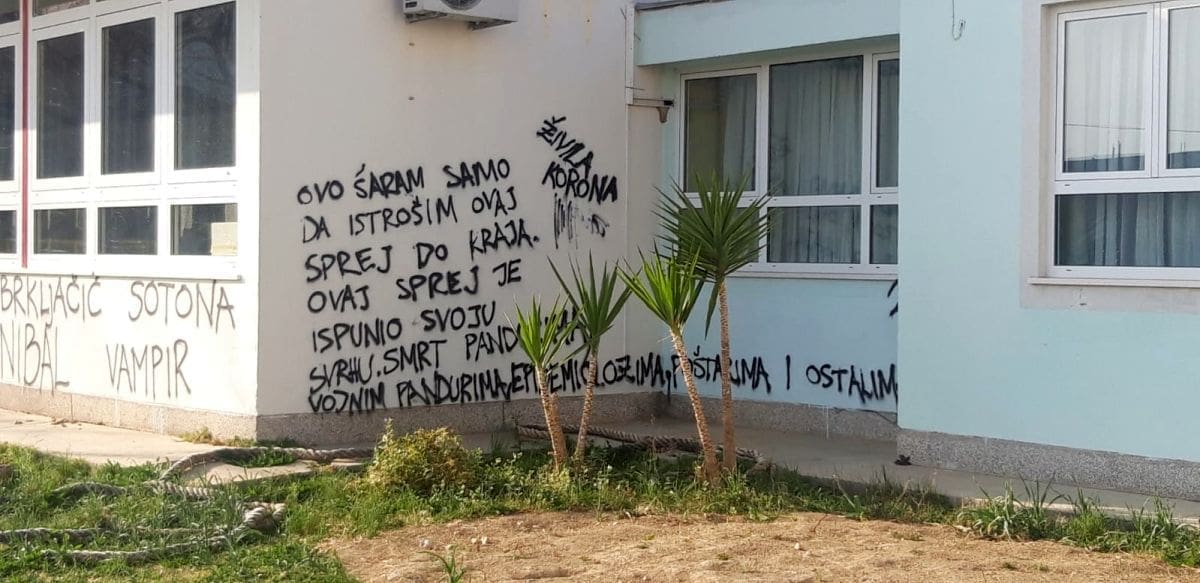 BRKLJAČIĆ SOTONA
NIBAL VAMPIR
OVO ŠARAM SAMO
DA ISTROŠIM OVAJ
SPREJ DO KRAJA.
OVAJ SPREJ JE
ISPUNIO SVOJU
SVRHU. SMRT PANDURIMA
VOJNIM PANDURIMA, EPIDEMIOLOZIMA, POŠTARIMA I OSTALIM
ŽIVILA
KORONA